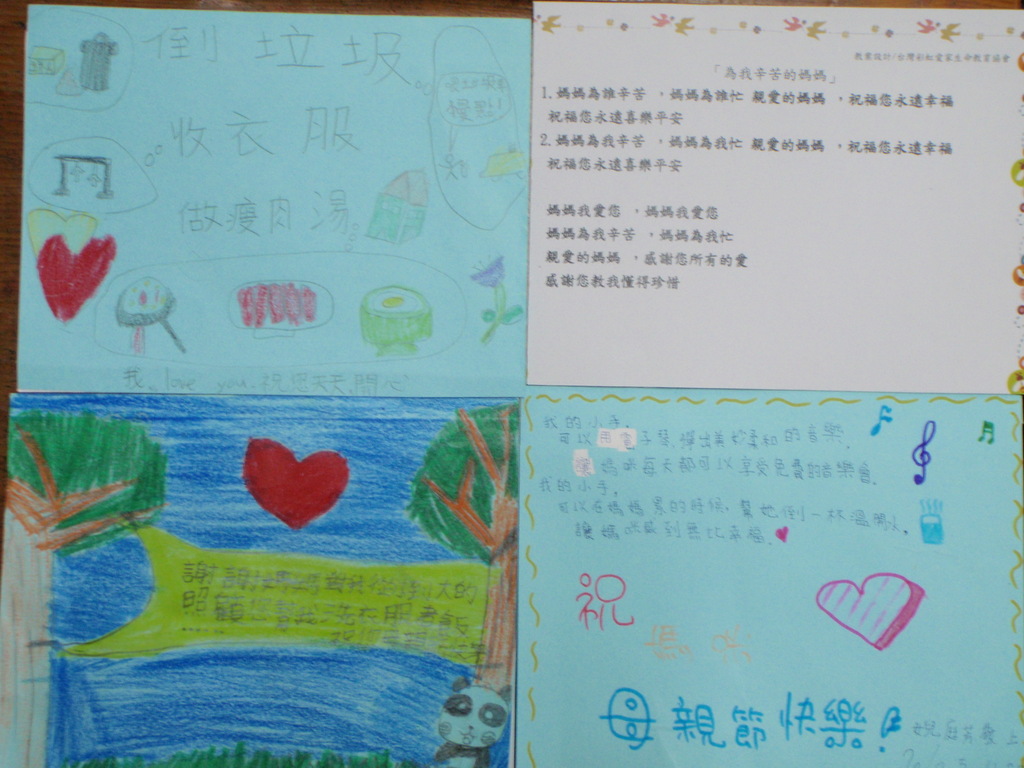 倒垃圾
收衣服
做瘦肉湯
慢點!
我 love you.祝您天天開心
教案設計/台灣彩虹愛家生命教育協會
「為我辛苦的媽媽」
1.媽媽為誰辛苦 ,媽媽為誰忙 親愛的媽媽 ,祝福您永遠幸福
祝福您永遠喜樂平安
2.媽媽為我辛苦 ,媽媽為我忙 親愛的媽媽 ,祝福您永遠幸福
祝福您永遠喜樂平安
媽媽我愛您 ,媽媽我愛您
媽媽為我辛苦 ,媽媽為我忙
親愛的媽媽 ,感謝您所有的愛
感謝您教我懂得珍惜
謝謝媽媽對我從小到大的
照顧您幫我洗衣服煮飯
......
我的小手,
可以用電子琴彈出美妙柔和的音樂.
讓媽咪每天都可以享受免費的音樂會.
我的小手,
可以在媽媽累的時候,幫她倒一杯溫開水,
讓媽咪感到無比幸福.
祝
媽咪
母親節快樂!